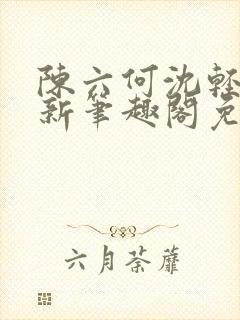 陳六何沈軽
新筆趣閣免
六月荼蘼